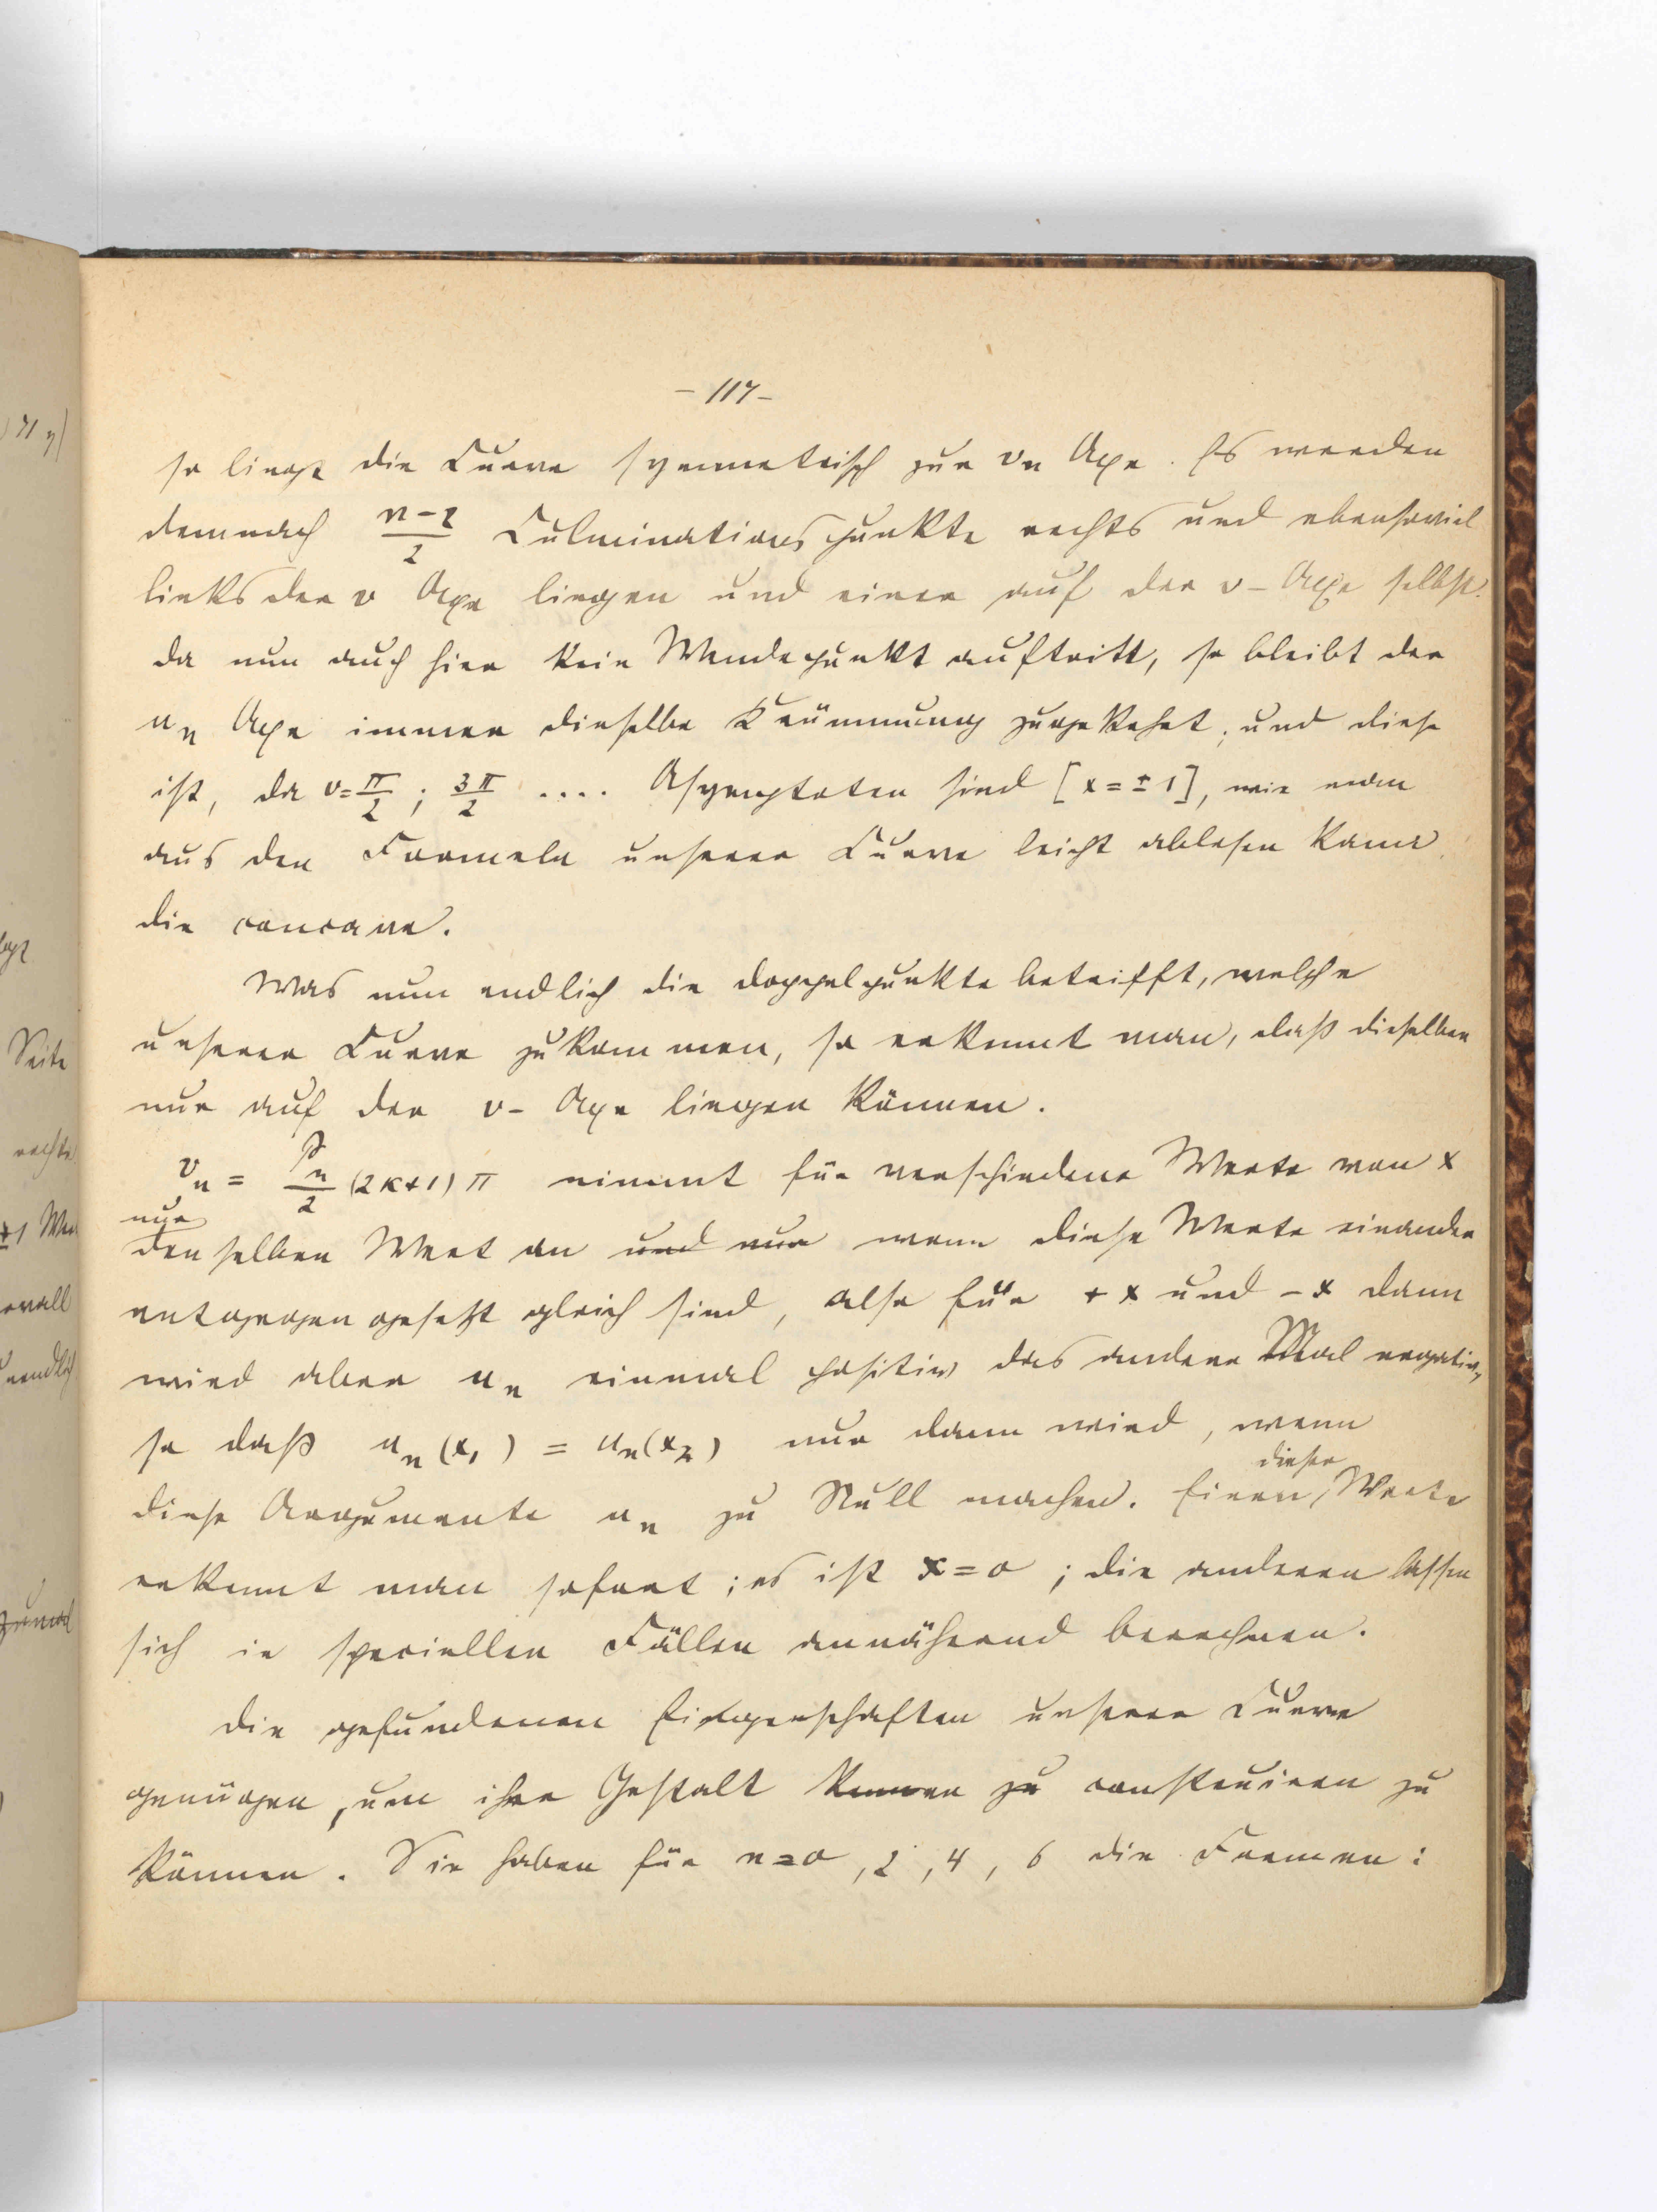 – 117 –
so liegt die Curve symmetrisch zur vₙ Axe. Es werden
demnach (n-2)/2 Culminationspunkte rechts und ebensoviel
links der v Axe liegen und einer auf der v-Axe selbst.
da nun auch hier kein Wendepunkt auftritt, so bleibt der
uₙ Axe immer dieselbe Krümmung zugekehrt, und diese
ist, da v = π/2 ; 3π/2 .... Asymptoten sind [x = ± 1], wie man
aus den Formeln unserer Curve leicht ablesen kann
die concave.
Was nun endlich die Doppelpunkte betrifft, welche
unserer Curve zukommen, so erkennt man, daß dieselben
nur auf der v-Axe liegen können.
vₙ = Pₙ/2 (2k+1) π nimmt für verschiedene Werte von x
nur
denselben Wert an und nur wenn diese Werte einander
entgegengesetzt gleich sind, also für + x und - x dann
wird aber uₙ einmal positiv das andere Mal negativ,
so daß uₙ(x₁) = uₙ(x₂) nur dann wird, wenn
dieser
diese Argumente uₙ zu Null machen. Einen Werte
erkennt man sofort; es ist x = 0 ; die anderen lassen
sich in speciellen Fällen annähernd berechnen.
Die gefundenen Eigenschaften unserer Curve
genügen, um ihre Gestalt zu construiren zu
können. Sie haben für n = 0, 2, 4, 6 die Formen:
Seite
rechts
±1
unendlich